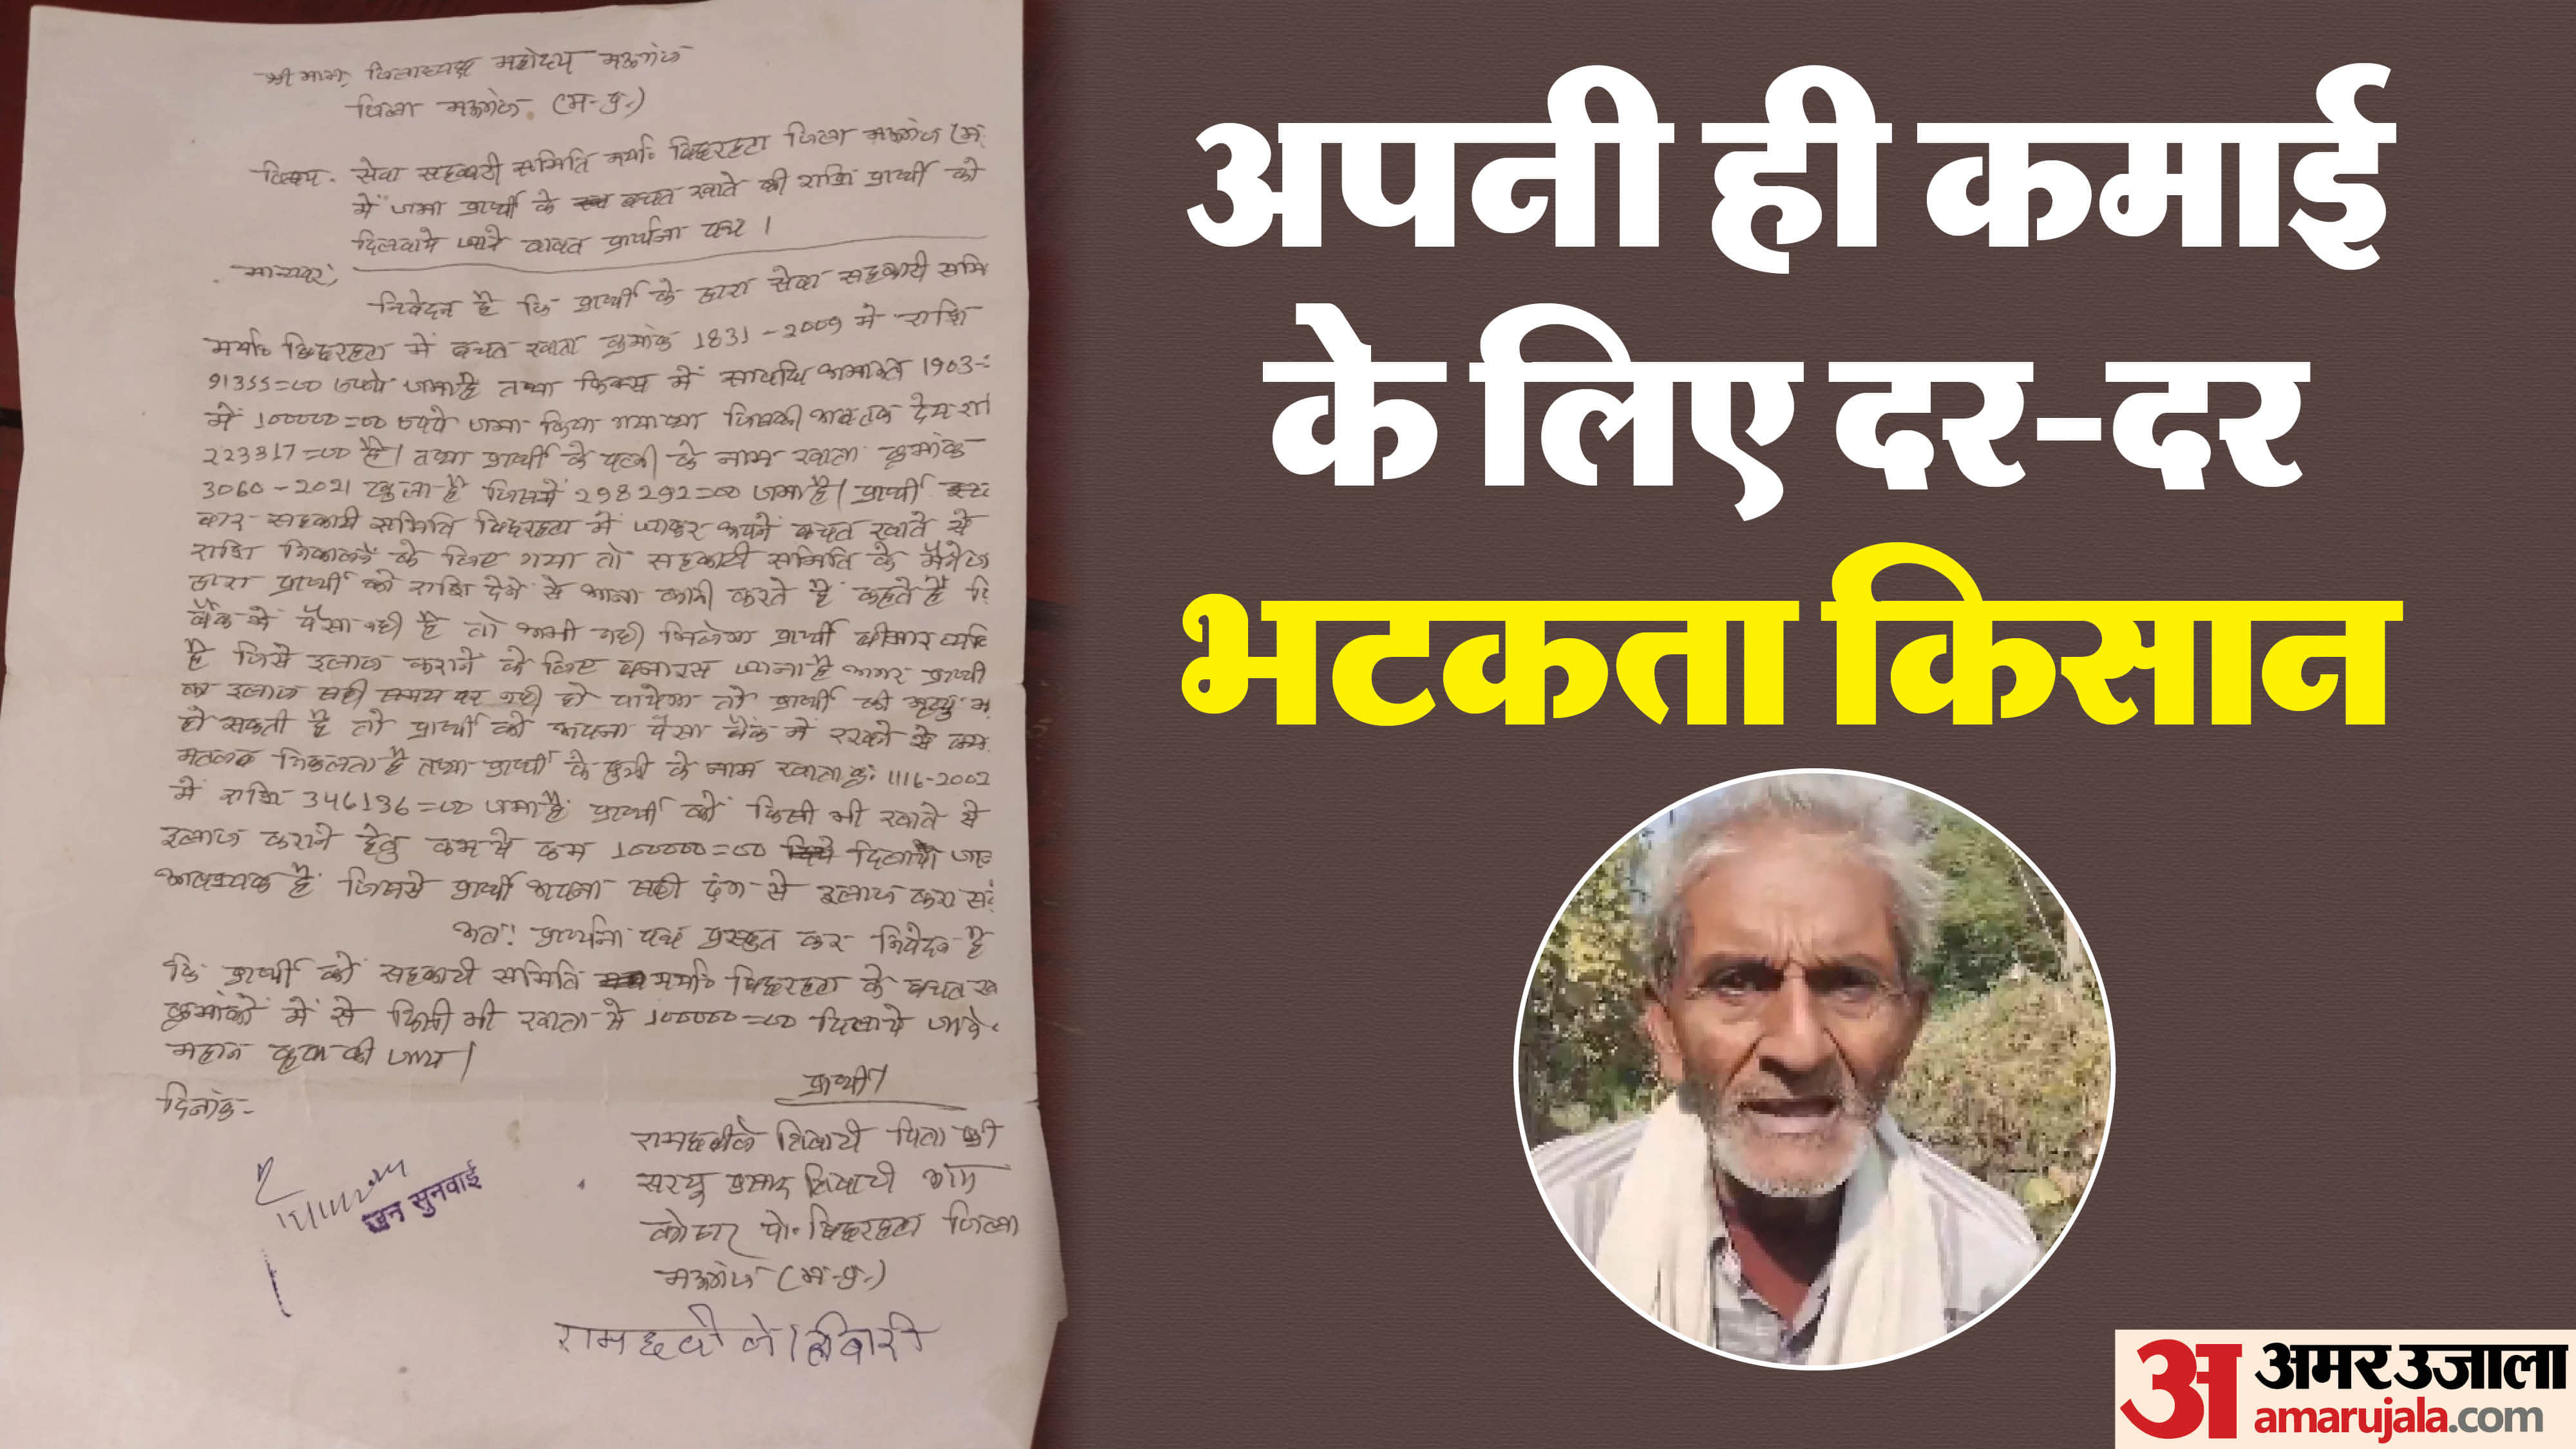 श्रीमान जिलाध्यक्ष महोदय मऊगंज
जिला मऊगंज (म-प्र-)
विषय- सेवा सहकारी समिति मर्या० बिछरहटा जिला मऊगंज (म
में जमा प्रार्थी के बचत खाते की राशि प्रार्थी को
दिलवाये जाने बावत प्रार्थना पत्र ।
मान्यवर,
निवेदन है कि प्रार्थी के द्वारा सेवा सहकारी समि
मर्या० बिछरहटा में बचत खाता क्रमांक 1831-2009 में राशि
91355=00 रुपये जमा है तथा फिक्स में सावधि अमानत 1903-
में 100000=00 रुपये जमा किया गया था जिसकी अबतक देय रा
223317=00 है। तथा प्रार्थी के पत्नी के नाम खाता क्रमांक
3060-2021 खुला है जिसमें 298292=00 जमा है। प्रार्थी
बार सहकारी समिति बिछरहटा में जाकर अपने बचत खाते से
राशि निकालने के लिए गया तो सहकारी समिति के मैनेज
द्वारा प्रार्थी को राशि देने से आना कानी करते है कहते है कि
बैंक में पैसा नही है तो अभी नही मिलेगा प्रार्थी बीमार व्यक्ति
है जिसे इलाज कराने के लिए बनारस जाना है अगर प्रार्थी
का इलाज सही समय पर नही हो पायेगा तो प्रार्थी की मृत्यु भ
हो सकती है तो प्रार्थी को अपना पैसा बैंक में रखने से क्या
मतलब निकलता है तथा प्रार्थी के पुत्री के नाम खाता क्र: 1116-2002
में राशि 346136=00 जमा है प्रार्थी को किसी भी खाते से
इलाज कराने हेतु कम से कम 100000=00 दिलाया जान
आवश्यक है जिससे प्रार्थी अपना सही ढंग से इलाज करा सके
अत: प्रार्थना पत्र प्रस्तुत कर निवेदन है
कि प्रार्थी को सहकारी समिति मर्या० बिछरहटा के बचत खा
क्रमांको में से किसी भी खाता से 100000=00 दिलाये जावे
महान कृपा की जाय।
दिनांक-
प्रार्थी
रामछबीले तिवारी पिता श्री
सरयु प्रसाद तिवारी ग्राम
पो. बिछरहटा जिला
मऊगंज (म-प्र-)
जन सुनवाई
अपनी ही कमाई
के लिए दर-दर
भटकता किसान
अ अमर उजाला
amarujala.com